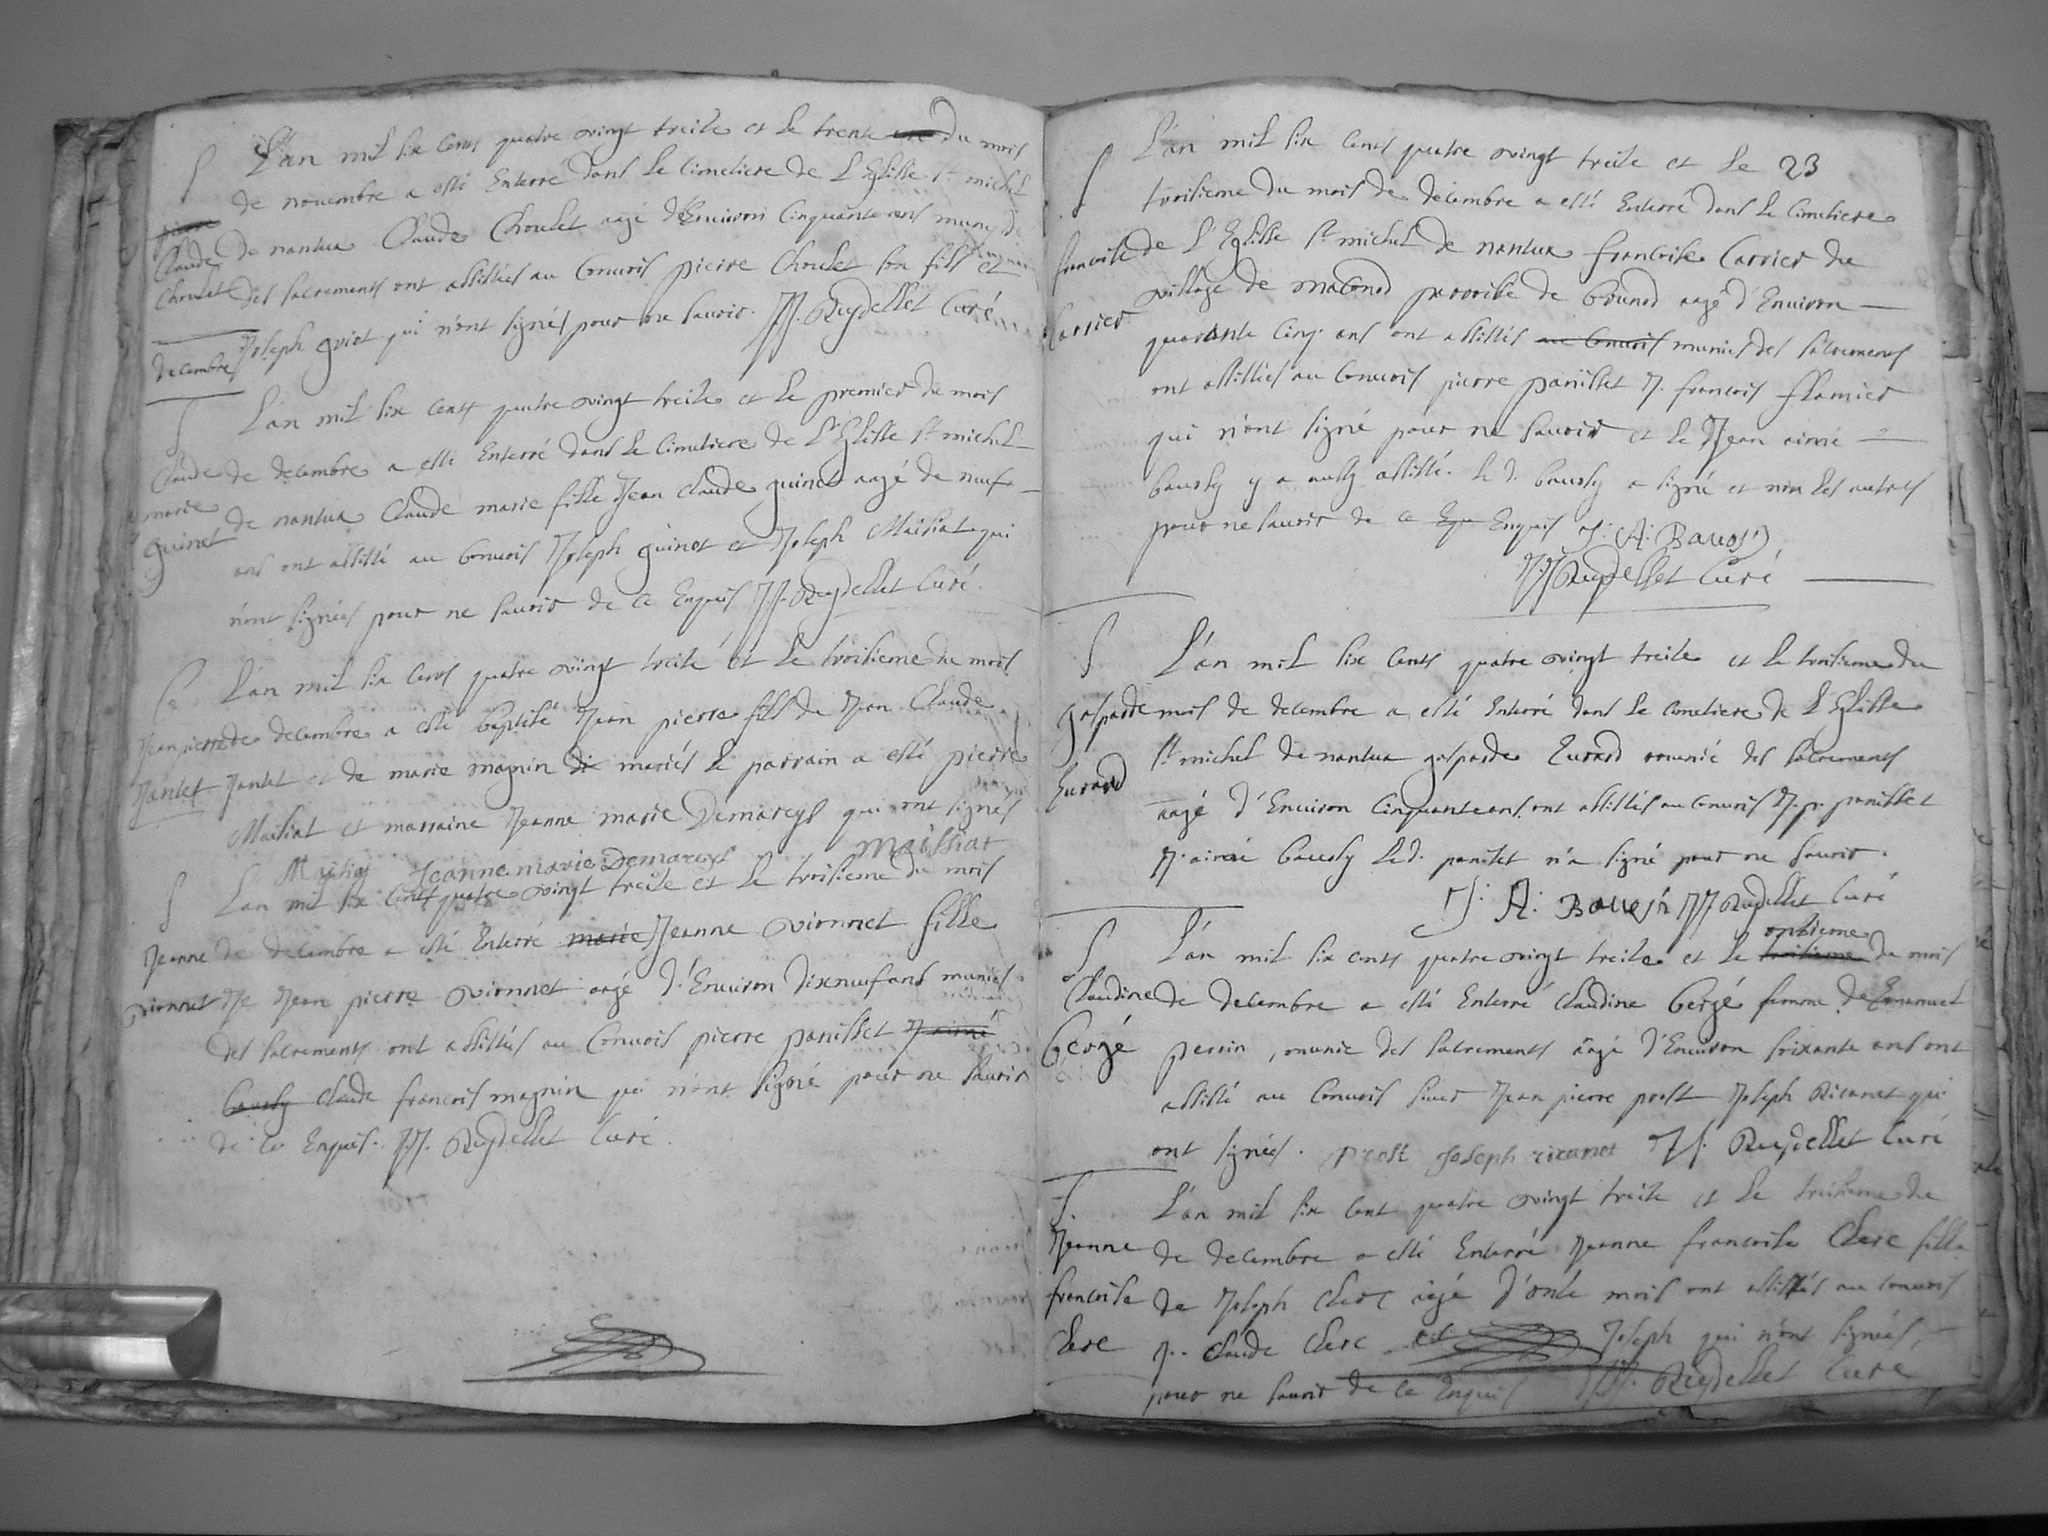 S L'an mil six cents quatre vingt treize et le trente du mois
de novembre a esté Enterré dans le cimetiere de L'Eglisse St michel
Claude de nantua Claude Choulet aagé d'Environ Cinquante ans muni
Choulet des sacrements ont assistées au Convois pierre Choulet son fils et
Joseph guiot qui n'ont signés pour ne savoir. JJ. Reydellet Curé
decembre
S L'an mil six cents quatre vingt treize et le premier de mois
Claude de decembre a esté Enterré dans le Cimetiere de L'Eglisse St michel
marie de nantua Claude marie fille Jean claude guinet aagé de neuf
guinet ans ont assisté au Convois Joseph guinet et Joseph Maissiat qui
n'ont signées pour ne savoir de ce Enquis JJ. Reydellet Curé.
L'an mil six cents quatre vingt treize et le troisieme du mois
Jean pierre de decembre a esté baptisé Jean pierre fils de Jean Claude
Jantet Jantet et de marie magnin mariés le parrain a esté pierre
Maisiat et marraine Jeanne marie Demareys qui ont signés
Jeanne marie Demareys maissiat
S L'an mil six cents quatre vingt treize et le troisieme du mois
Jeanne de decembre a esté Enterré marie Jeanne vionnet fille
vionnet de Jean pierre vionnet aagé d'Environ dixneuf ans munies
des sacrements ont assistés au Convois pierre panisset J aimé
bavosy Claude francois magnin qui n'ont signé pour ne savoir
de ce Enquis. JJ. Reydellet Curé.
S L'an mil six cents quatre vingt treize et le 23
troisieme du mois de decembre a esté Enterré dans le Cimetiere
francoise de L'Eglisse St michel de nantua francoise Carrier du
village de maconod parroisse de brenod aagé d'Environ
Carrier quarante cinq ans ont assistés au Convois munies des sacrements
ont assistées au Convois pierre panisset J. francois flamier
qui n'ont signé pour ne savoir et le Jean aimé
bavosy y a aussy assisté. le d. bavosy a signé et non les autres
pour ne savoir de ce Enquis J. A. Bavosy
JJ Reydellet Curé
S L'an mil six cents quatre vingt treize et le troisieme du
gasparde mois de decembre a esté Enterré dans le cimetiere de L'Eglisse
St michel de nantua gasparde Evrard munié des sacrements
Evrard aagé d'Environ Cinquante ans ont assistés au Convois J. p. panisset
J. aimé bavosy le d. paniset n'a signé pour ne savoir.
J. A. Bavosy JJ Reydellet Curé
onzieme
S L'an mil six cents quatre vingt treize et le troisieme de mois
Claudine de decembre a esté Enterré Claudine bergé femme de Emanuel
bergé perrin, munie des sacrements aagé d'Environ soixante ans ont
assisté au Convois sieur Jean pierre prost Joseph Ricanet qui
ont signés. prost Joseph ricanet JJ. Reydellet Curé
S. L'an mil six cent quatre vingt treize et le treisieme du
Jeanne de decembre a esté Enterré Jeanne francoise Clerc fille
francoise de Joseph Clerc aagé d'onze mois ont assistés au convois
Clerc J. Claude Clerc et Joseph qui n'ont signés,
pour ne savoir de ce Enquis JJ. Reydellet Curé